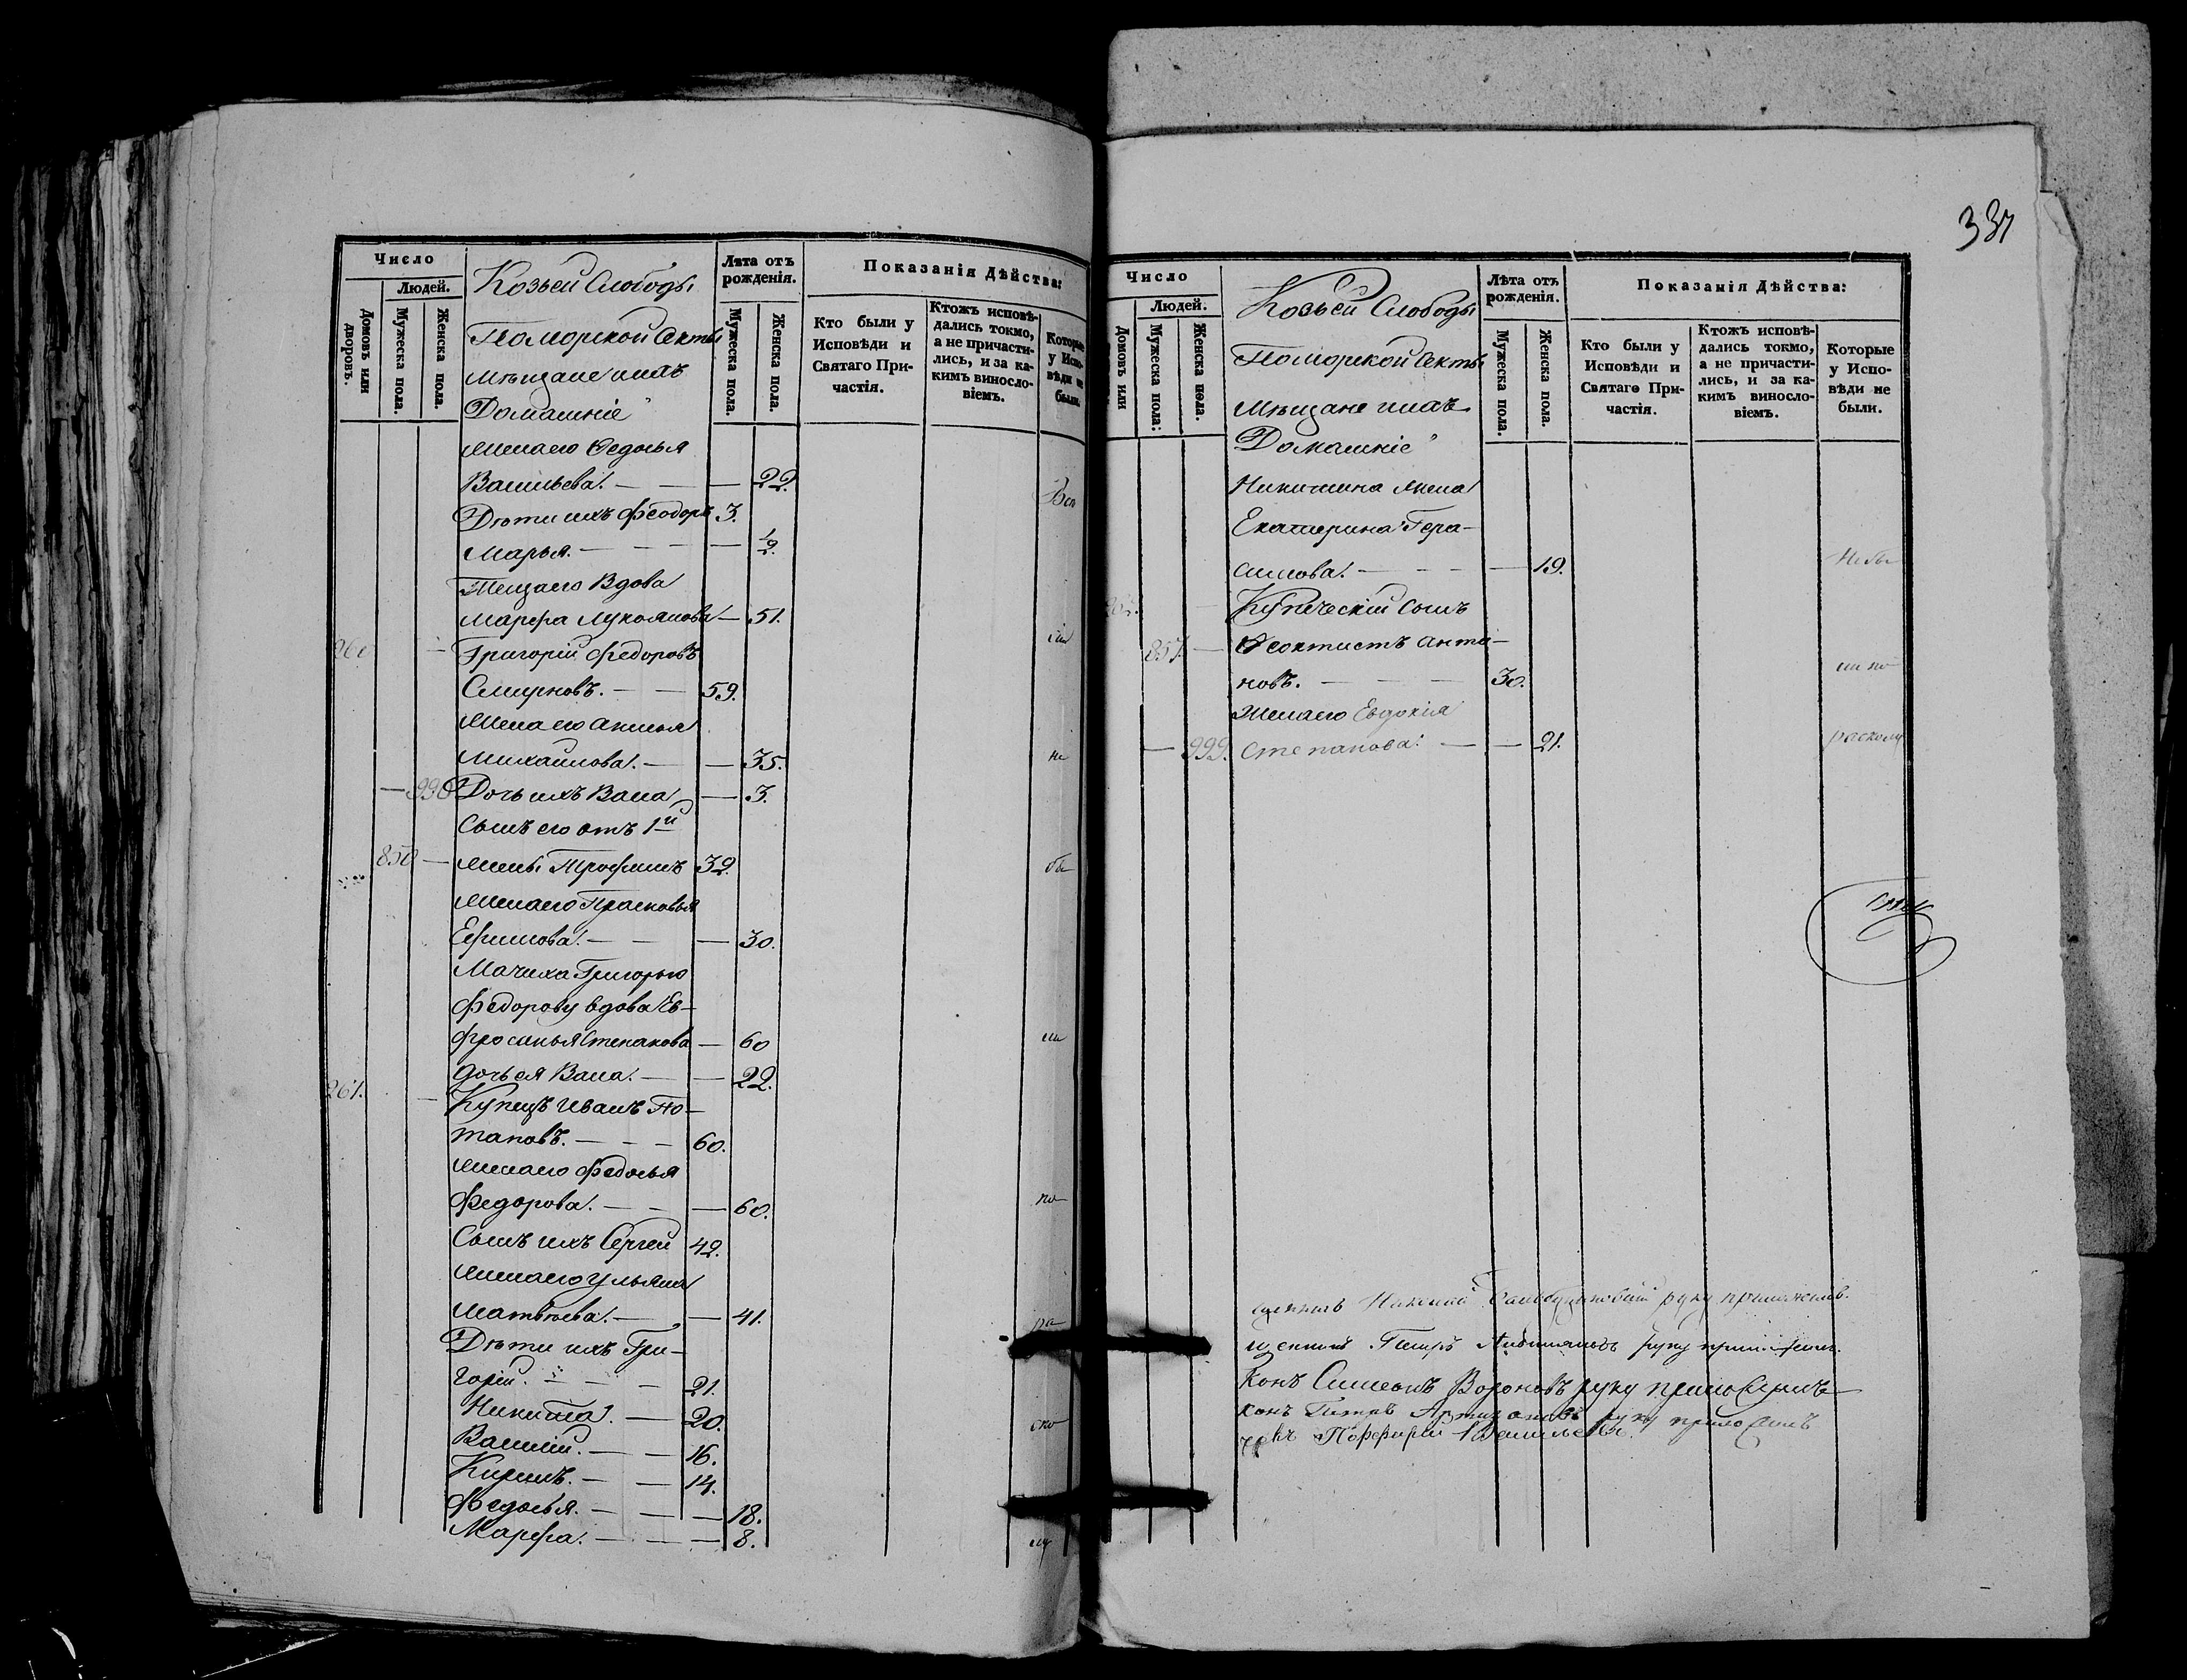 Число
Людей.
Домовъ или дворовъ.
Мужеска пола.
Женска пола.
Козьей Слободы
Поморской Секты
Мѣщане и ихъ
Домашніе
Лѣта отъ рожденія.
Мужеска пола.
Женска пола.
Показанія Дѣйства:
Кто были у Исповѣди и Святаго Причастія.
Ктожъ исповѣдались токмо, а не причастились, и за какимъ винословіемъ.
Которые у Исповѣди не были.
Жена его Федосья
Васильева. — — 22.
Дѣти ихъ Феодоръ 3.
Марья. — — — 1/2.
Теща его Вдова
Марфа Лукоянова — 51.
Григорій Федоровъ
Смирновъ. — — 59.
Жена его Аксинья
Михайлова. — — 35.
— 998 Дочь ихъ Васса — 3.
Сынъ его отъ 1й
850 — жены Трофимъ 32.
Жена его Прасковья
Ефимова. — — — 30.
Мачиха Григорью
Федорову вдова Ев-
фросинья Степанова — 60
дочь ея Васса. — — 22.
261. — Купецъ Иванъ По-
таповъ. — — — 60.
Жена его Федосья
Федорова. — — — 60.
Сынъ ихъ Сергей 42.
Жена его Ульяна
Матвѣева. — — 41.
Дѣти ихъ Гри-
горій. — — — 21.
Никита. — 20.
Василій. — — 16.
Кирилъ. — — 14.
Федосья. — — — 18.
Марфа. — — — 8.
337
Число
Людей.
Домовъ или
Мужеска пола:
Женска пола.
Козьей Слободы
Поморской Секты
Мѣщане и ихъ
Домашніе
Лѣта отъ рожденія.
Мужеска пола.
Женска пола.
Показанія Дѣйства:
Кто были у Исповѣди и Святаго Причастія.
Ктожъ исповѣдались токмо, а не причастились, и за какимъ винословіемъ.
Которые у Исповѣди не были.
Никитина жена
Екатерина Гера-
симова. — — — — 19.
Купеческій сынъ
857. — Феоктистъ Анти-
новъ. — — — 30.
Жена его Евдокія
— 999. Степанова: — — 21.
по
расколу
руку приложилъ.
Петръ руку приложилъ.
конъ Симеонъ Вороновъ руку приложилъ
конъ Петръ руку приложилъ
Порфирій Васильевъ